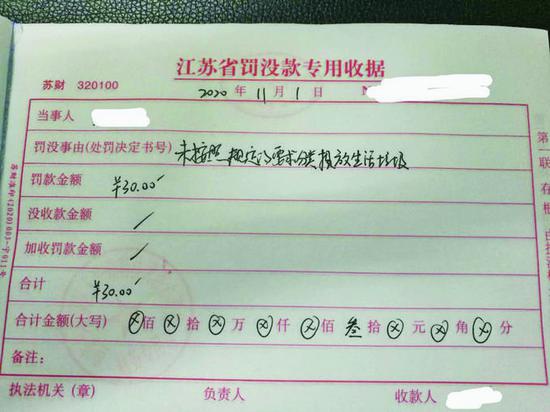 江苏省罚没款专用收据
苏财 320100 2020 年 11 月 1 日 N
当事人
罚没事由(处罚决定书号) 未按照规定的要求分类投放生活垃圾
罚款金额 ¥30.00
没收款金额 /
加收罚款金额 /
合计 ¥30.00
合计金额(大写) ⊗佰⊗拾⊗万⊗仟⊗佰叁拾⊗元⊗角⊗分
备注:
执法机关(章) 负责人 收款人
第一联存根